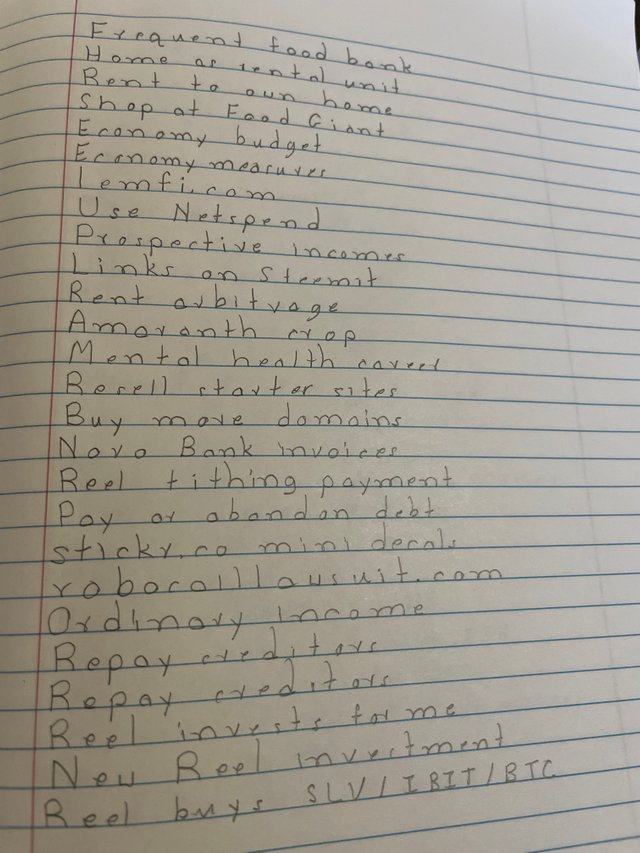 Frequent food bank
Home as rental unit
Rent to own home
Shop at Food Giant
Economy budget
Economy measures
Lemfi.com
Use Netspend
Prospective incomes
Links on Steemit
Rent arbitrage
Amaranth crop
Mental health career
Resell starter sites
Buy more domains
Novo Bank invoices
Reel tithing payment
Pay or abandon debt
sticky.co mini decals
robocalllawsuit.com
Ordinary income
Repay creditors
Repay creditors
Reel invests for me
New Reel investment
Reel buys SLV/IBIT/BTC